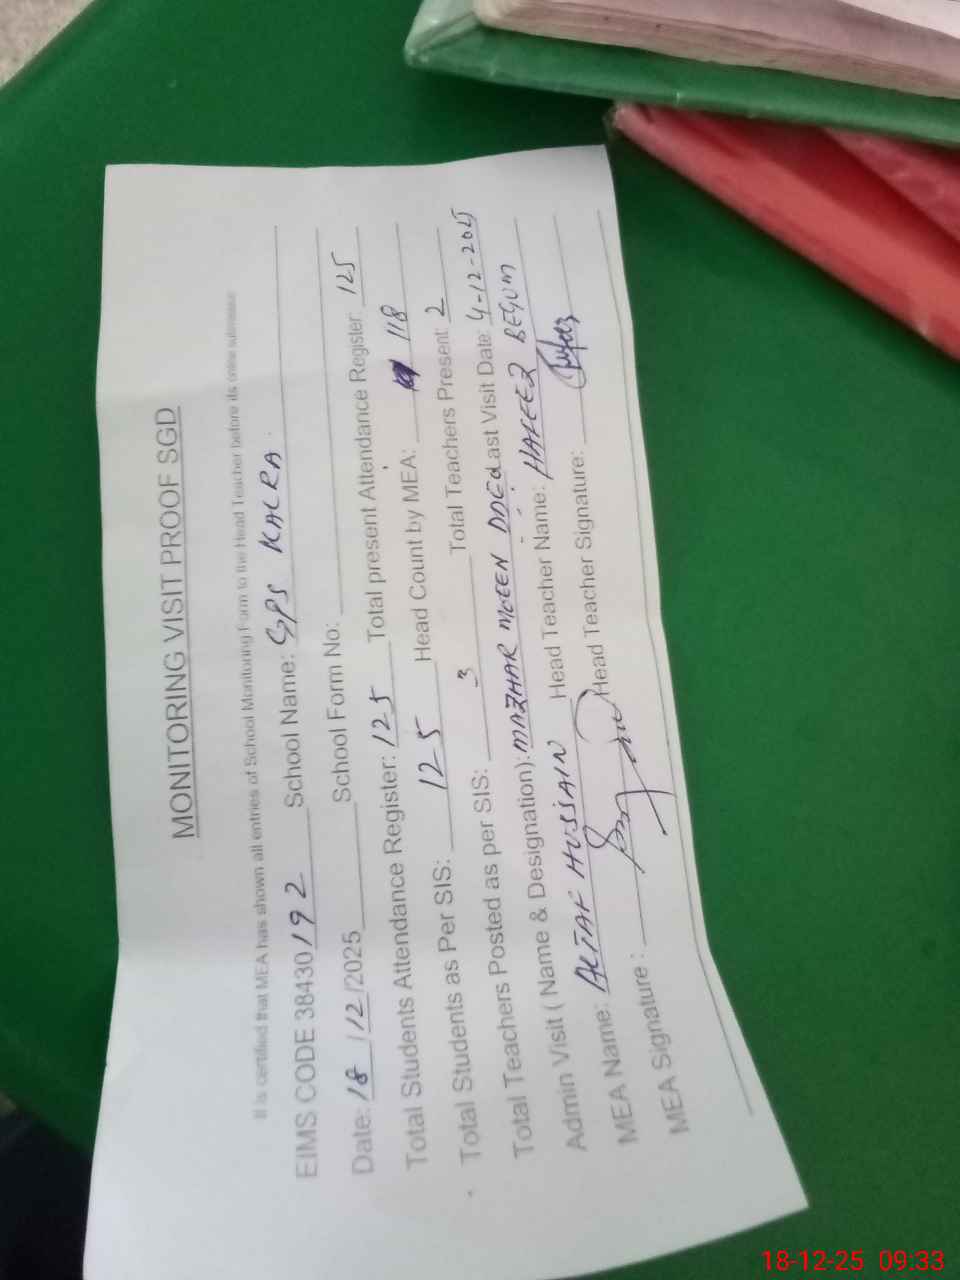 MONITORING VISIT PROOF SGD
It is certified that MEA has shown all entries of School Monitoring Form to the Head Teacher before its online submission
EIMS CODE 38430192 School Name: GPS KALRA
Date: 18/12/2025 School Form No:
Total Students Attendance Register: 125 Total present Attendance Register 125
Total Students as Per SIS: 125 Head Count by MEA: 118
Total Teachers Posted as per SIS: 3 Total Teachers Present: 2
Admin Visit ( Name & Designation): MAZHAR MOEEN Last Visit Date: 4-12-2025
MEA Name: ALTAF HUSSAIN Head Teacher Name: HAFEEZ BEGUM
MEA Signature : Head Teacher Signature:
18-12-25 09:33